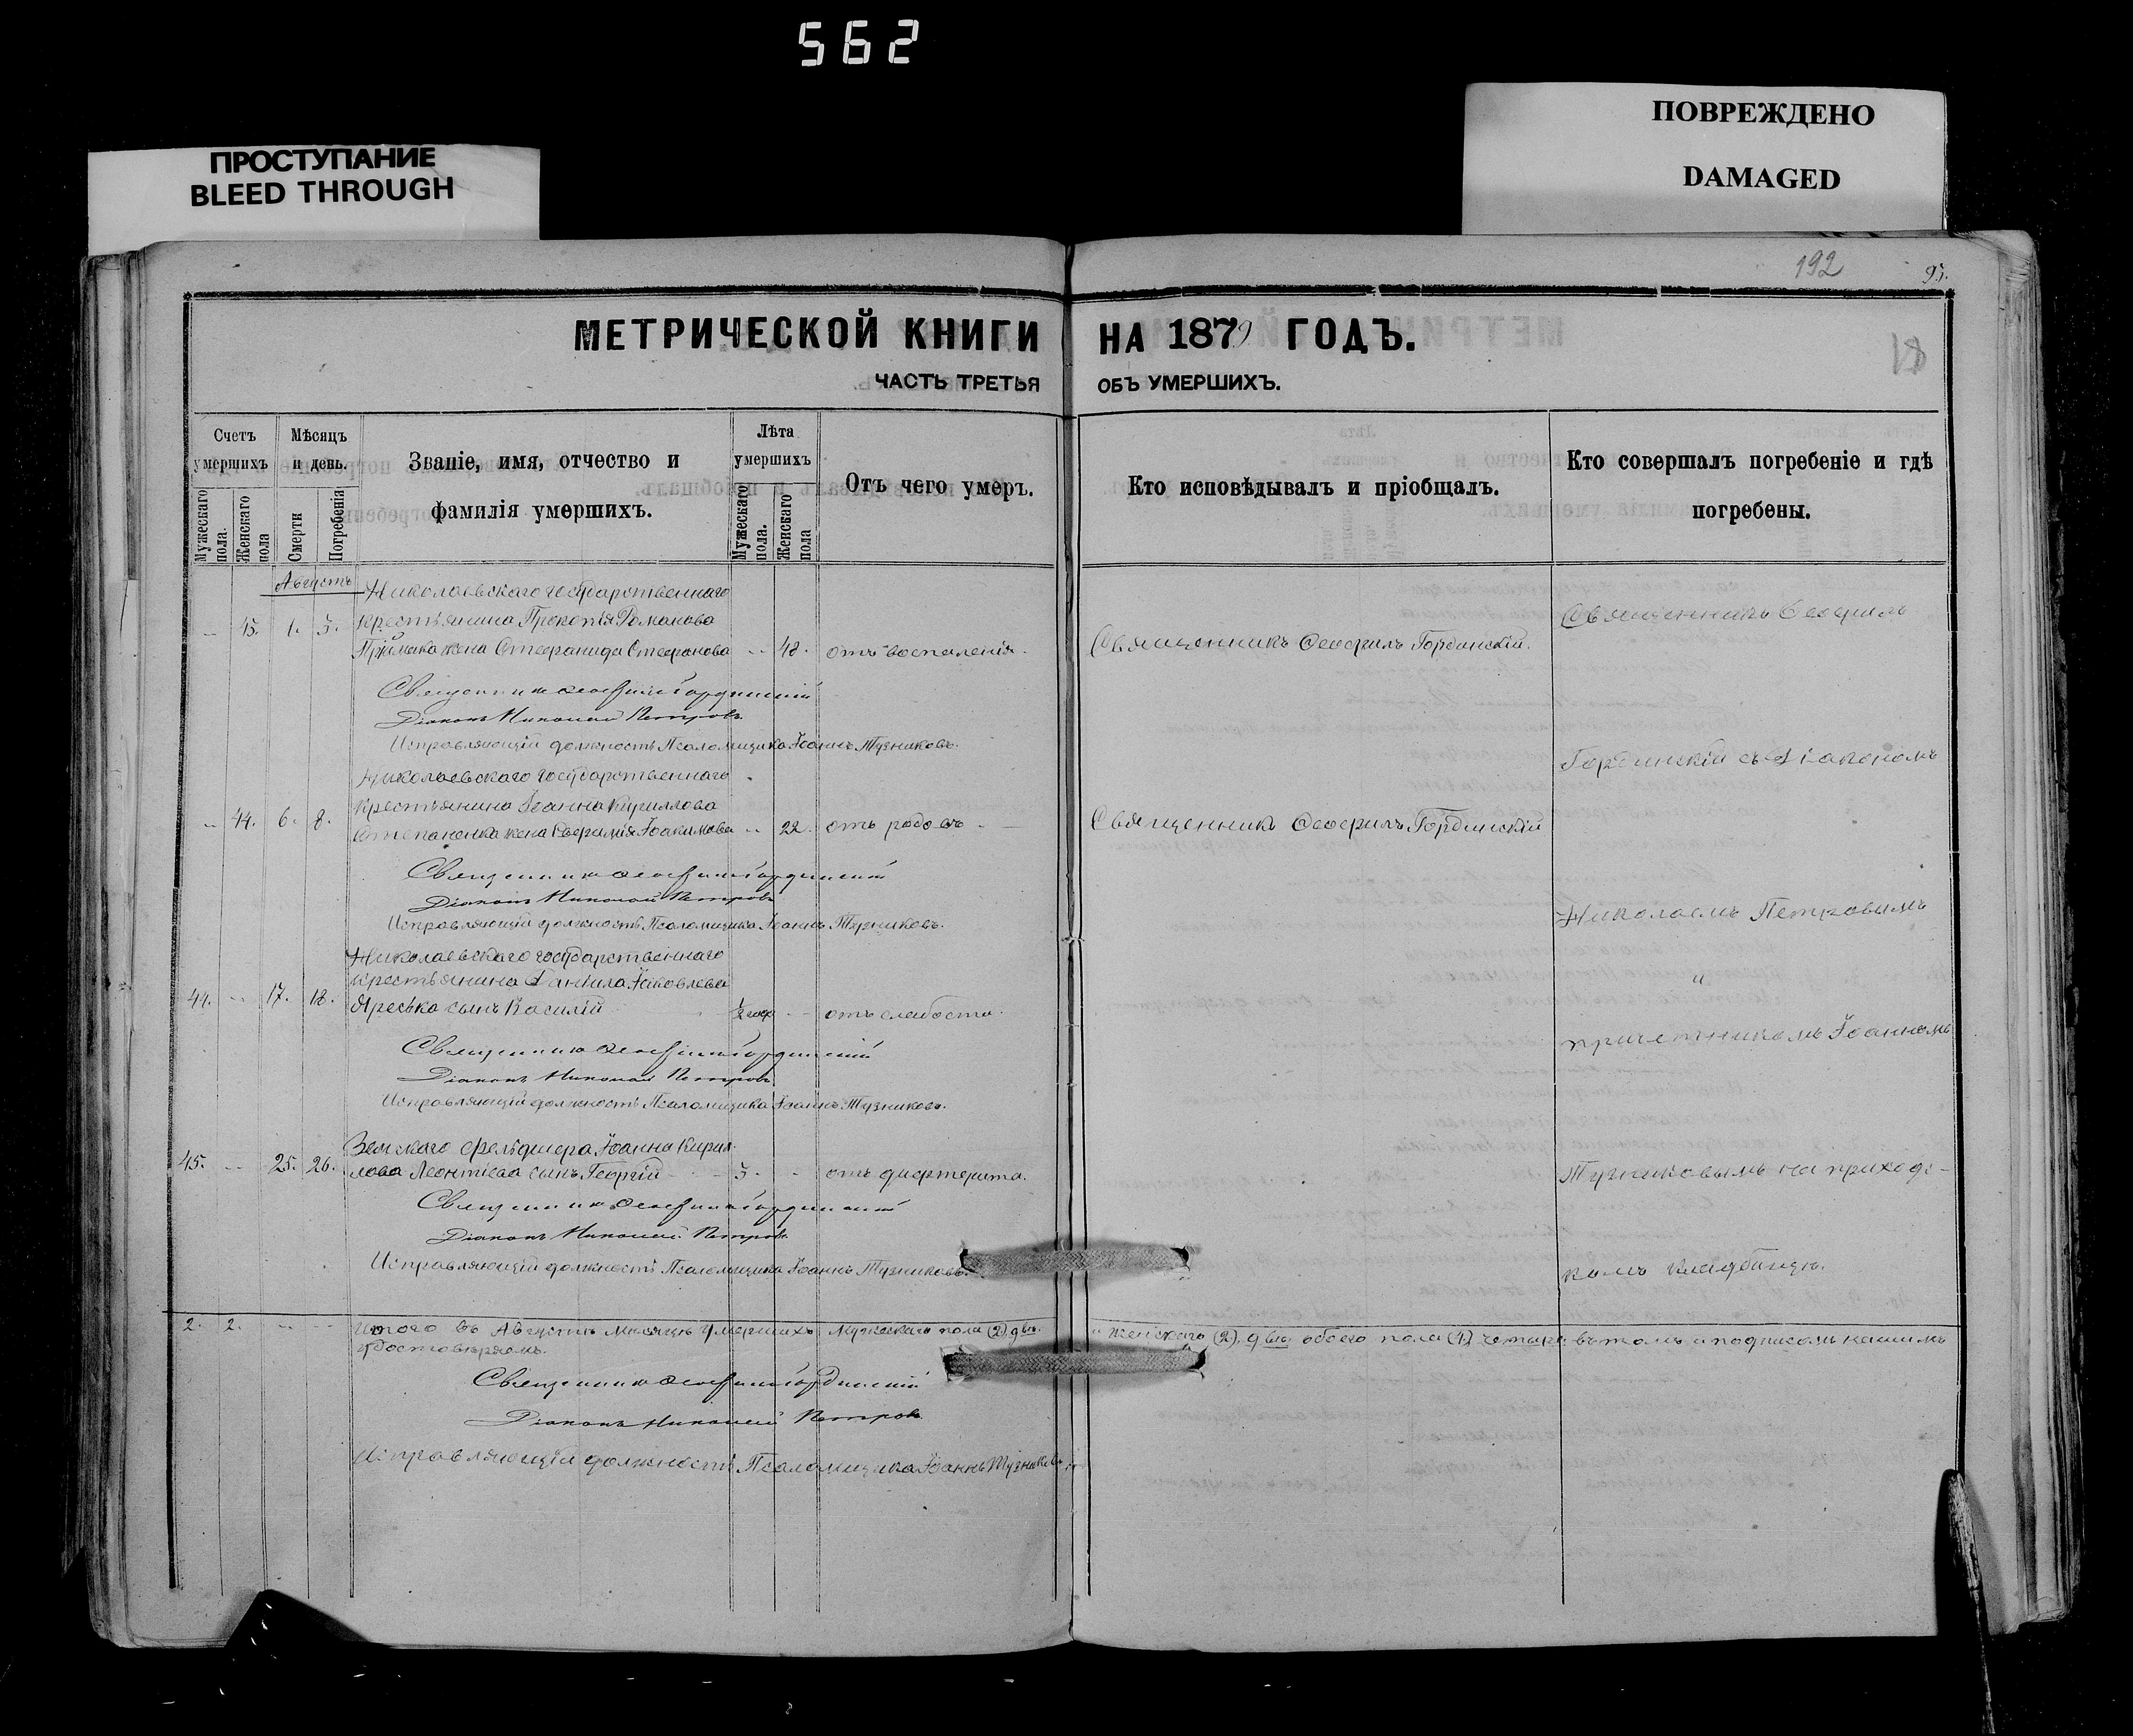 562
ПРОСТУПАНИЕ
BLEED THROUGH
ПОВРЕЖДЕНО
DAMAGED
192
95.
МЕТРИЧЕСКОЙ КНИГИ НА 1879 ГОДЪ.
ЧАСТЬ ТРЕТЬЯ ОБЪ УМЕРШИХЪ.
Счетъ умершихъ
Мужескаго пола.
Женскаго пола
Мѣсяцъ и день.
Смерти
Погребенія
Званіе, имя, отчество и фамилія умершихъ.
Лѣта умершихъ
Мужескаго пола.
Женскаго пола
Отъ чего умеръ.
Кто исповѣдывалъ и пріобщалъ.
Кто совершалъ погребеніе и гдѣ погребены.
Августъ
Николаевскаго государственнаго
крестьянина Прокопія Романова
43. 1. 3. Приймака жена Стефанида Стефанова 48. отъ воспаленія. Священникъ Ѳеофилъ Гординскій.
Священникъ Ѳеофилъ Гординскій
Діаконъ Николай Петровъ
Исправляющій должность Псаломщика Іоаннъ Тузниковъ.
Николаевскаго государственнаго
крестьянина Іоанна Кириллова
44. 6. 8. Степаненка жена Евфимія Іоакимова 22. отъ родовъ Священникъ Ѳеофилъ Гординскій
Священникъ Ѳеофилъ Гординскій
Діаконъ Николай Петровъ
Исправляющій должность Псаломщика Іоаннъ Тузниковъ.
Николаевскаго государственнаго
крестьянина Даніила Яковлева
44. 17. 18. Яреська сынъ Василій ½ года отъ слабости.
Священникъ Ѳеофилъ Гординскій
Діаконъ Николай Петровъ
Исправляющій должность Псаломщика Іоаннъ Тузниковъ.
Земскаго фельдшера Іоанна Кирил-
45. 25. 26. лова Леонтіева сынъ Георгій 3. отъ дифтерита.
Священникъ Ѳеофилъ Гординскій
Діаконъ Николай Петровъ
Исправляющій должность Псаломщика Іоаннъ Тузниковъ.
Священникъ Ѳеофилъ
Гординскій съ Діакономъ
Николаемъ Петровымъ
и
причетникомъ Іоанномъ
Тузниковымъ на приход-
комъ кладбищѣ.
2. 2. Итого въ Августѣ мѣсяцѣ умершихъ мужескаго пола (2) двѣ. и женскаго (2) двѣ обоего пола (4) четыре въ томъ и подписомъ нашимъ
удостовѣряемъ.
Священникъ Ѳеофилъ Гординскій
Діаконъ Николай Петровъ
Исправляющій должность Псаломщика Іоаннъ Тузниковъ